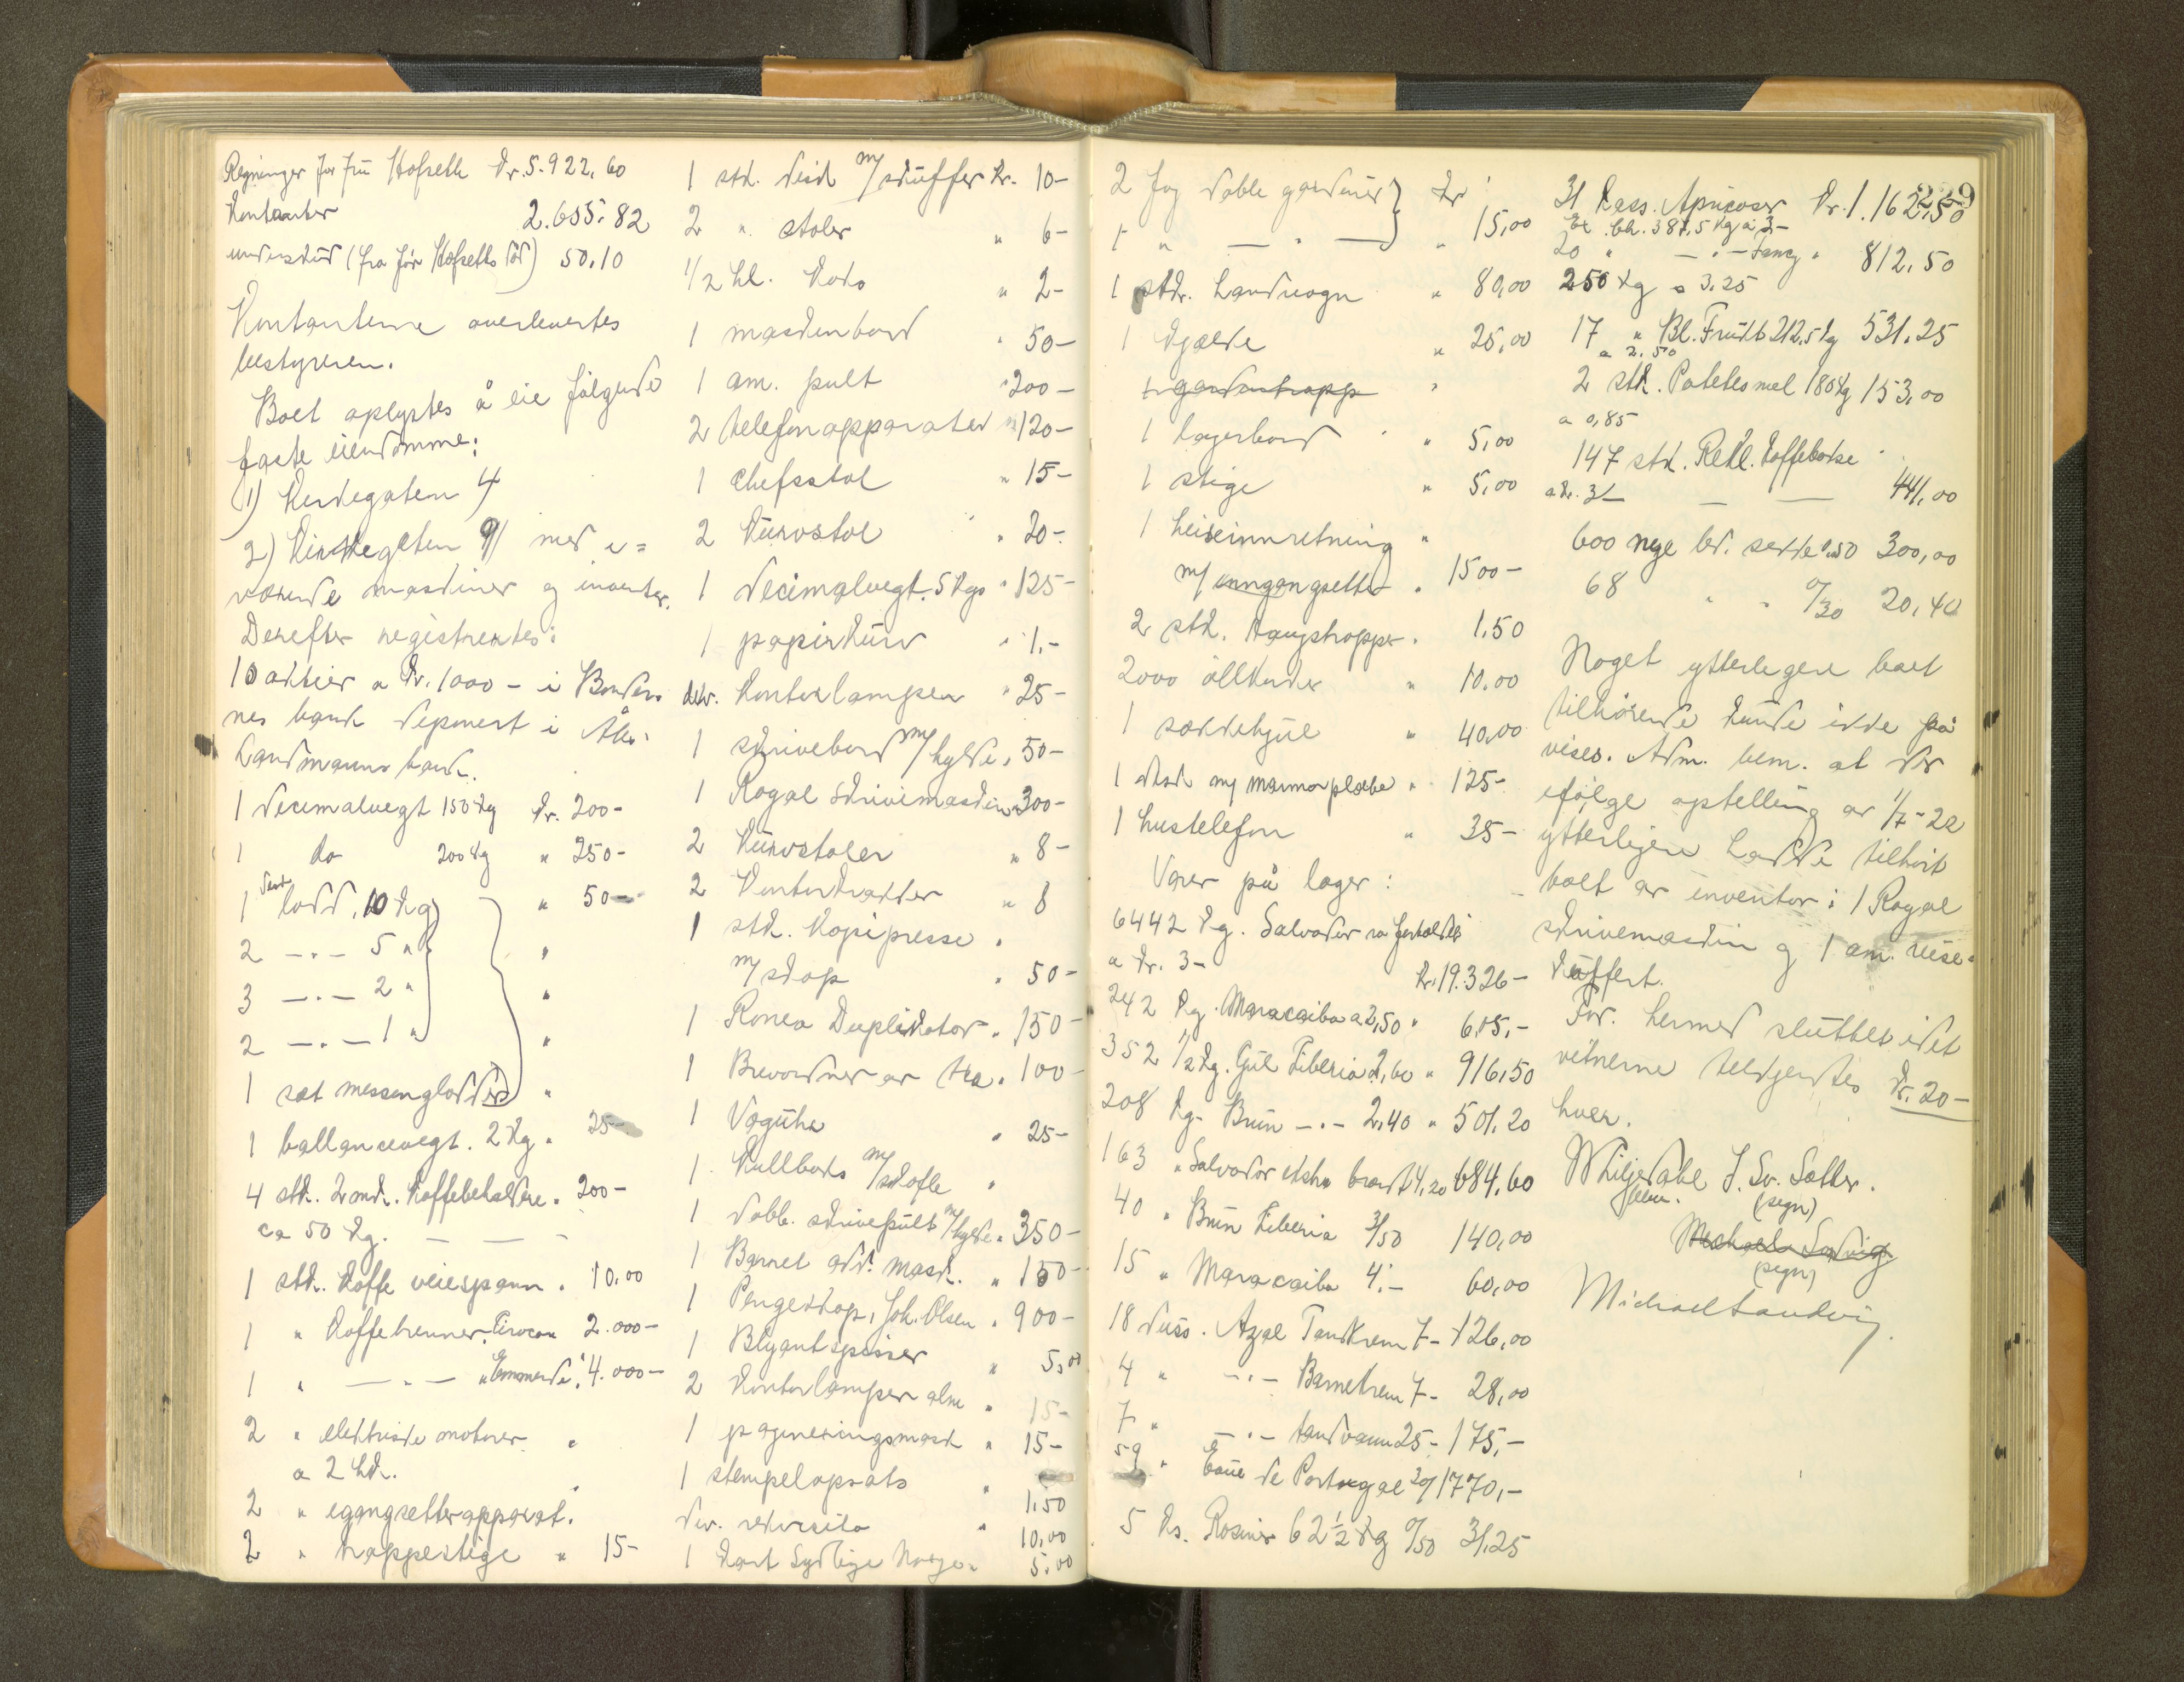 Regninger for fru Hofseth kr. 5.922,60
Kontanter 2.655.82
underskud (fra før Hofseths död) 50.10
Kontanterne overlevertes
bestyreren.
Boet oplystes å eie fölgende
faste eiendomme:
1) Kirkegaten 4
2) Kirkegaten 9 med i=
værende maskiner og inventar.
Derefter registrertes:
10 aktier a kr. 1000 - i Bönder-
nes bank deponert i Åles.
Landmanns bank.
1 decimalvegt 150 kg kr. 200-
1 do 200 kg " 250-
1 lodd, 10 kg " 50-
2 -"- 5 " "
3 -"- 2 " "
2 -"- 1 " "
1 sæt messinglodder "
1 ballancevegt. 2 kg. 25-
4 stk. Kaffebeholdere " 200-
ca 50 kg. - - -
1 stk. Kaffe veiespann " 10.00
1 " Kaffebrenner, Sirocco 2.000-
1 " -"- " Emmerich " 4.000-
2 " elektriske motorer "
a 2 hk.
2 " igangsetterapparat "
2 " trappestige " 15-
1 stk. disk m/ skuffer kr. 10-
2 " stoler " 6-
1/2 hl. Koks " 2-
1 maskinbord " 50-
1 am. pult " 200-
2 telefonapparater " 120-
1 chefsstol " 15-
2 Kurvstol " 20-
1 decimalvegt. 5 kgs " 125-
1 papirkurv " 1.-
div. Kontorlamper " 25-
1 skrivebord m/ hylde " 50-
1 Royal Skrivemaskin " 300-
2 Kurvstoler " 8-
2 Kontorkrakker " 8
1 stk. Kopipresse "
m/ skap " 50-
1 Roneo Duplikator " 150-
1 Brevordner av træ " 100-
1 Væguhr " 25-
1 Kullboks m/ skofle "
1 dobb. skrivepult m/ hylde " 350-
1 Barret add. mask. " 150-
1 Pengeskap, Joh. Olsen " 900-
1 Blyantspisser " 5,00
2 Kontorlamper alm " 15-
1 pagineringsmask " 15-
1 stempelopsats " 1,50
div. rekvisita " 10,00
1 Kart Sydlige Norge " 5,00
229
2 fag doble gardiner } kr
1 " - " - } " 15,00
1 stk. Landvogn " 80,00
1 Kjælke " 25,00
1 gardintrapp "
1 lagerbord " 5,00
1 stige " 5,00
1 heiseinnretning "
m/ inngangsetter " 1500-
2 stk. Haugstropper " 1.50
2000 " 10.00
1 sækkehjul " 40,00
1 disk m/ marmorplate " 125-
1 hustelefon " 35-
Varer på lager:
6442 kg. Salvador
a kr. 3- kr. 19.326-
242 kg. Maracaibo a 2,50 " 605,-
352 1/2 kg. Gul Liberia 2,60 " 916,50
208 kg. Brun -"- 2,40 " 501,20
163 " Salvador brændt 4,20 684,60
40 " Brun Liberia 3/50 140,00
15 " Maracaibo 4.- 60,00
18 duss. Azal Tandkrem 7- 126,00
4 " -"- Barnekrem 7- 28,00
7 " -"- tandvann 25- 175,-
59 " Eaue de Portugal 30/ 1770,-
5 ks. Rosiner 62 1/2 kg 0/50 31,25
31 kass. Apricoser kr. 1.162,50
387,5 kg a 3-
20 " -"- fancy " 812,50
250 kg a 3.25
17 " Bl. Frukt 212,5 kg 531.25
a 2.50
2 stk. Potetesmel 180 kg 153,00
a 0,85
147 stk. Rekl. Kaffebokse
a kr. 3- - - 441,00
600 nye br. sekke 0.50 300,00
68 " " 0/30 20,40
Noget ytterligere boet
tilhörende kunde ikke på
vises. Adm. bem. at der
ifölge optelling av 1/7-22
ytterligere hadde tilhört
boet av inventar: 1 Royal
skrivemaskin og 1 am. reise-
kuffert.
For. hermed sluttet idet
vitnerne tilkjendtes kr. 20-
hver.
Whiljedahl J. Sv. Sætter.
fullm. (sign)
Michael Landvig
(sign)
Michael Landvig